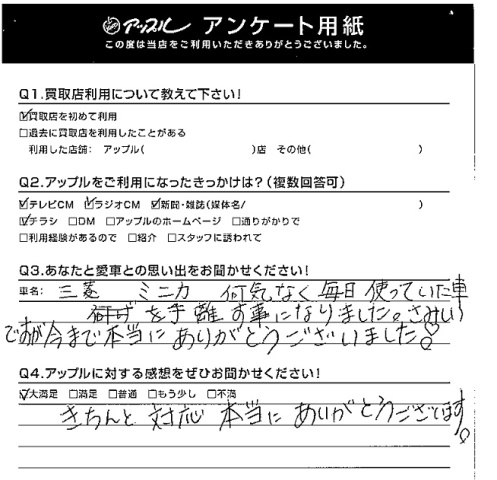 アップル アンケート用紙
この度は当店をご利用いただきありがとうございました。
Q1.買取店利用について教えて下さい!
☑買取店を初めて利用
□過去に買取店を利用したことがある
利用した店舗: アップル( )店 その他( )
Q2.アップルをご利用になったきっかけは?(複数回答可)
☑テレビCM ☑ラジオCM ☑新聞・雑誌(媒体名/ )
☑チラシ □DM □アップルのホームページ □通りがかりで
□利用経験があるので □紹介 □スタッフに誘われて
Q3.あなたと愛車との思い出をお聞かせください!
車名: 三菱 ミニカ 何気なく毎日使っていた車
を手離す事になりました。さみしい
ですが今まで本当にありがとうございました。♡
Q4.アップルに対する感想をぜひお聞かせください!
☑大満足 □満足 □普通 □もう少し □不満
きちんと対応 本当にありがとうございます。